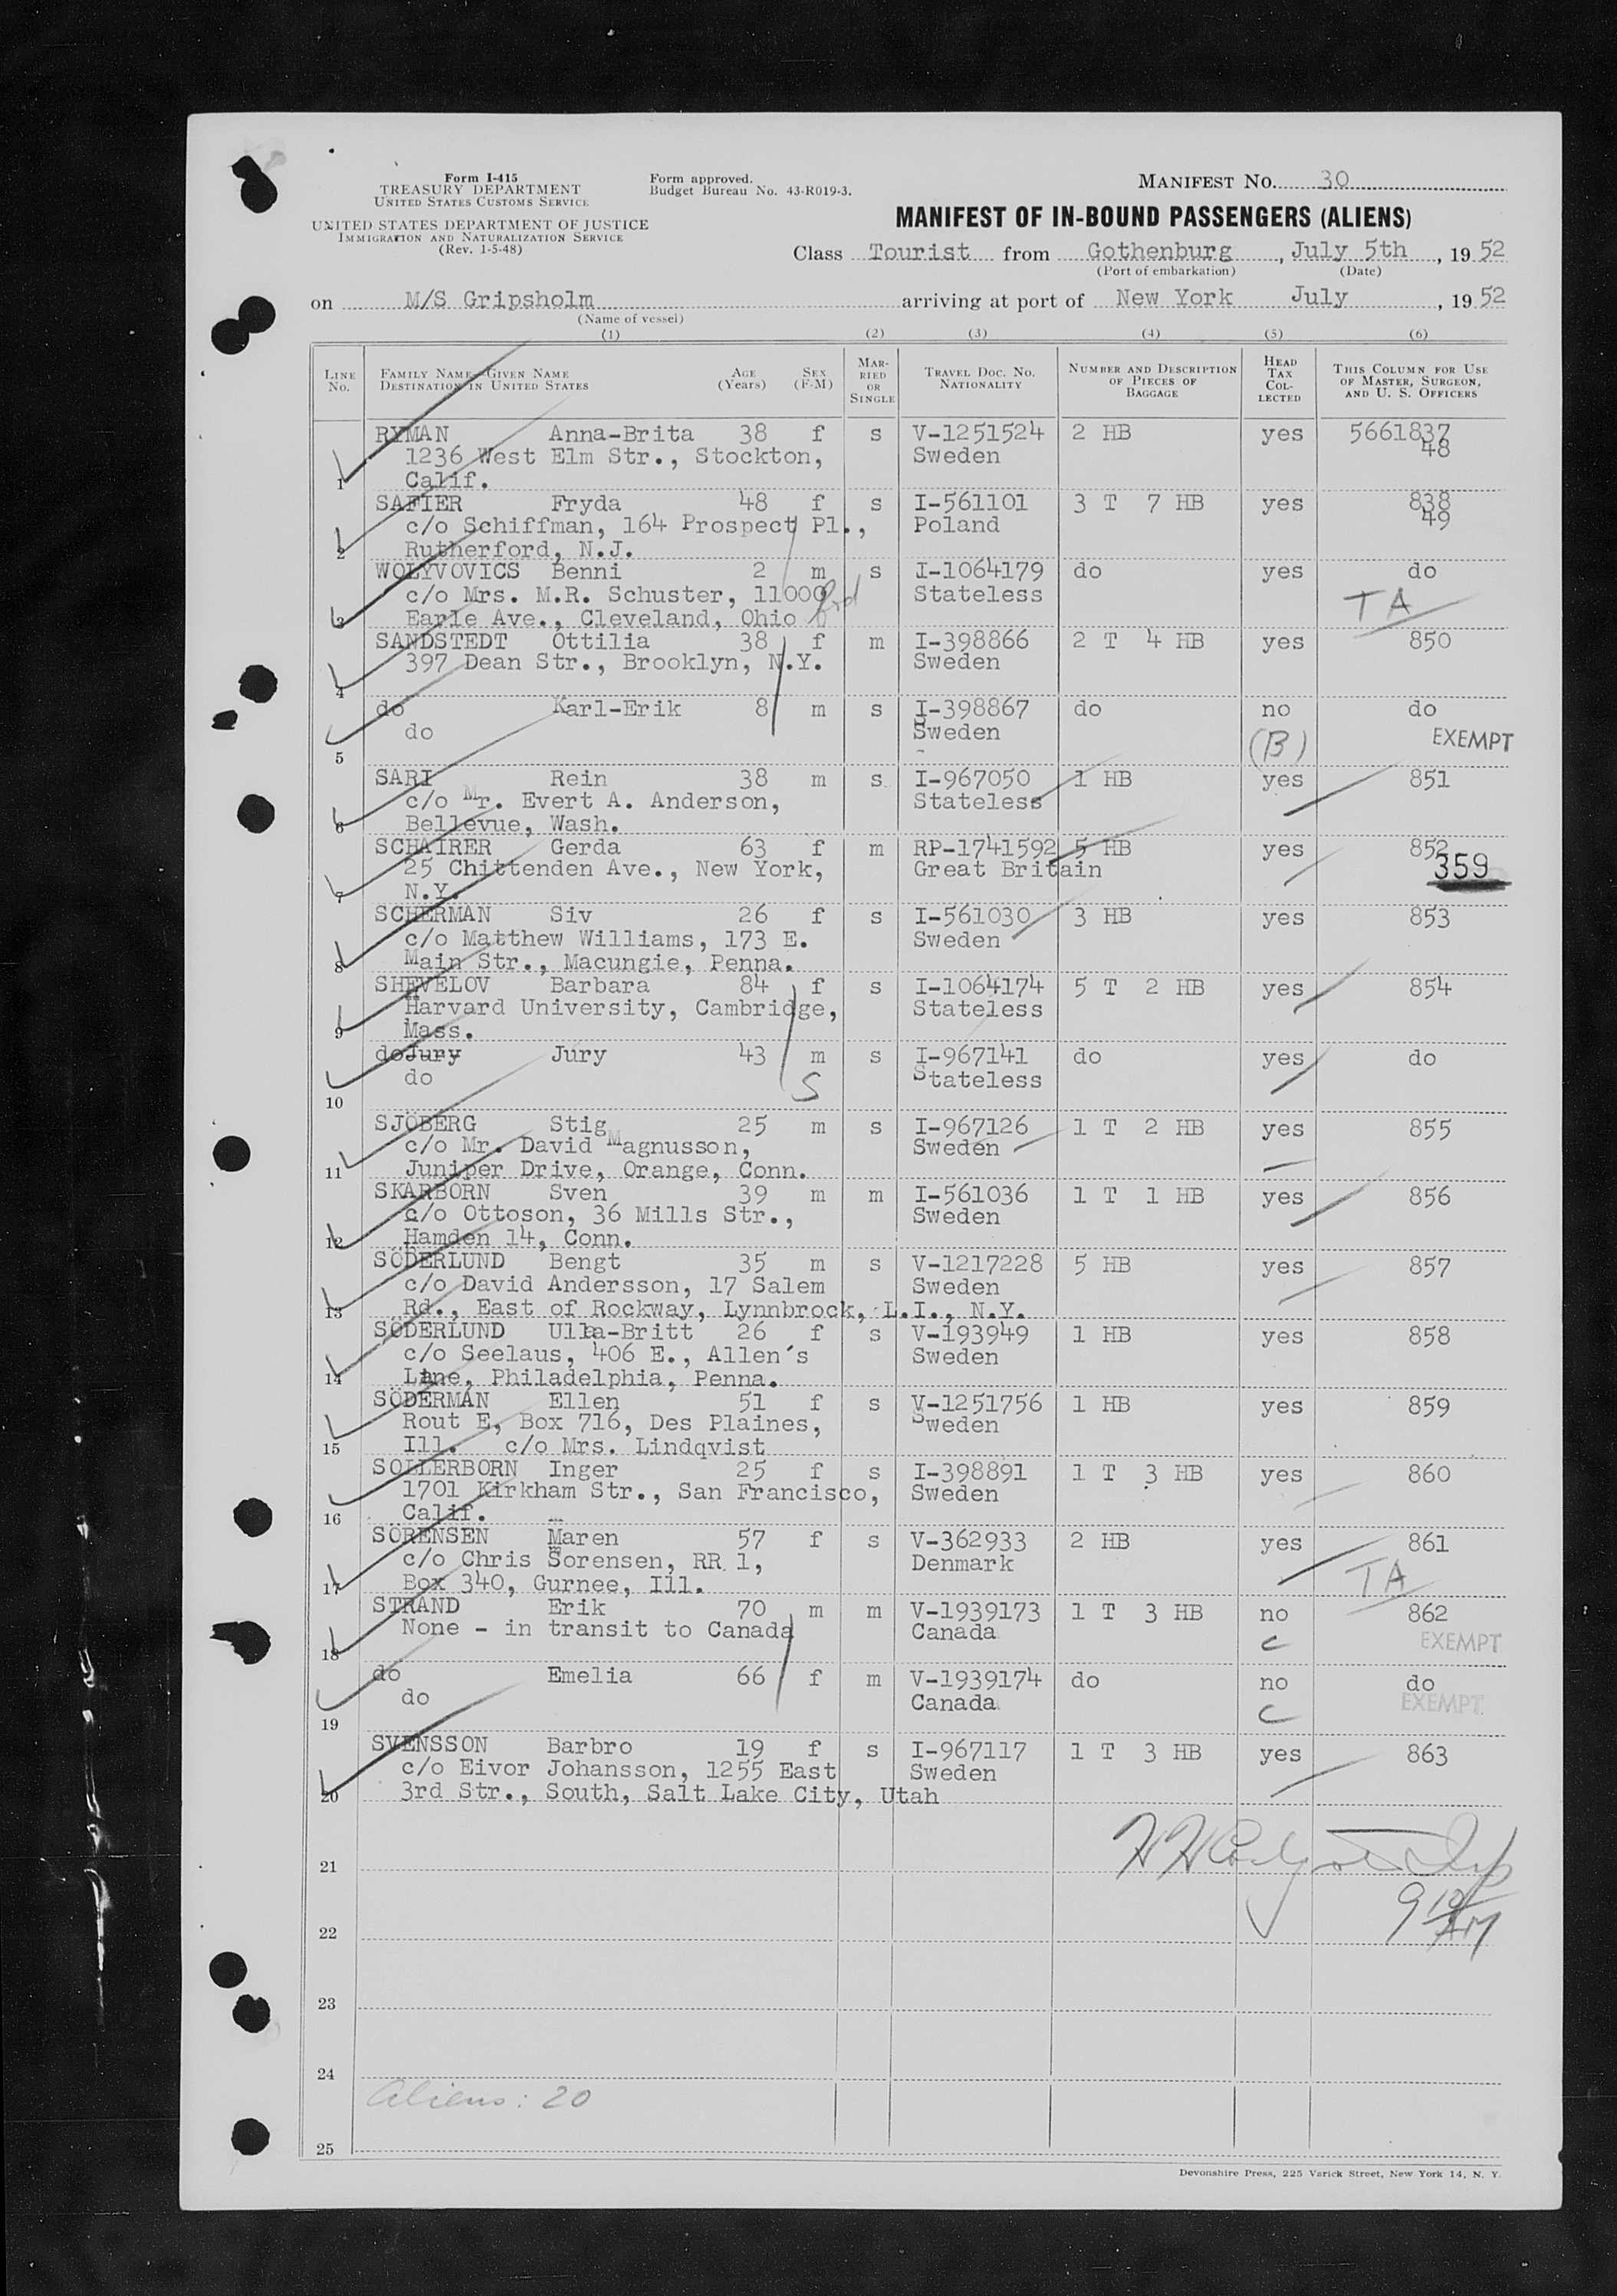 Form I-415
TREASURY DEPARTMENT
UNITED STATES CUSTOMS SERVICE
UNITED STATES DEPARTMENT OF JUSTICE
IMMIGRATION AND NATURALIZATION SERVICE
(Rev. 1-5-48)
Form approved.
Budget Bureau No. 43-R019-3.
MANIFEST No. 30
MANIFEST OF IN-BOUND PASSENGERS (ALIENS)
Class Tourist from Gothenburg, July 5th, 1952
(Port of embarkation) (Date)
on M/S Gripsholm arriving at port of New York July, 1952
(Name of vessel)
(1) (2) (3) (4) (5) (6)
LINE No. FAMILY NAME—GIVEN NAME DESTINATION IN UNITED STATES AGE (Years) SEX (F-M) MARRIED OR SINGLE TRAVEL DOC. NO. NATIONALITY NUMBER AND DESCRIPTION OF PIECES OF BAGGAGE HEAD TAX COLLECTED THIS COLUMN FOR USE OF MASTER, SURGEON, AND U. S. OFFICERS
RYMAN Anna-Brita 38 f s V-1251524 2 HB yes 5661837
1236 West Elm Str., Stockton, Sweden 48
1 Calif.
SAFIER Fryda 48 f s I-561101 3 T 7 HB yes 838
c/o Schiffman, 164 Prospect Pl., Poland 49
2 Rutherford, N.J.
WOLYVOVICS Benni 2 m s I-1064179 do yes do
c/o Mrs. M.R. Schuster, 11000 Stateless TA
3 Earle Ave., Cleveland, Ohio
SANDSTEDT Ottilia 38 f m I-398866 2 T 4 HB yes 850
397 Dean Str., Brooklyn, N.Y. Sweden
4
do Karl-Erik 8 m s I-398867 do no do
do Sweden (B) EXEMPT
5
SARI Rein 38 m s I-967050 1 HB yes 851
c/o Mr. Evert A. Anderson, Stateless
6 Bellevue, Wash.
SCHAIRER Gerda 63 f m RP-1741592 5 HB yes 852
25 Chittenden Ave., New York, Great Britain 359
7 N.Y.
SCHERMAN Siv 26 f s I-561030 3 HB yes 853
c/o Matthew Williams, 173 E. Sweden
8 Main Str., Macungie, Penna.
SHEVELOV Barbara 84 f s I-1064174 5 T 2 HB yes 854
Harvard University, Cambridge, Stateless
9 Mass.
doJury Jury 43 m s I-967141 do yes do
do S Stateless
10
SJÖBERG Stig 25 m s I-967126 1 T 2 HB yes 855
c/o Mr. David Magnusson, Sweden
11 Juniper Drive, Orange, Conn.
SKARBORN Sven 39 m m I-561036 1 T 1 HB yes 856
c/o Ottoson, 36 Mills Str., Sweden
12 Hamden 14, Conn.
SÖDERLUND Bengt 35 m s V-1217228 5 HB yes 857
c/o David Andersson, 17 Salem Sweden
13 Rd., East of Rockway, Lynnbrock, L.I., N.Y.
SÖDERLUND Ulla-Britt 26 f s V-193949 1 HB yes 858
c/o Seelaus, 406 E., Allen's Sweden
14 Lane, Philadelphia, Penna.
SÖDERMAN Ellen 51 f s V-1251756 1 HB yes 859
Rout E, Box 716, Des Plaines, Sweden
15 Ill. c/o Mrs. Lindqvist
SOLLERBORN Inger 25 f s I-398891 1 T 3 HB yes 860
1701 Kirkham Str., San Francisco, Sweden
16 Calif.
SÖRENSEN Maren 57 f s V-362933 2 HB yes 861
c/o Chris Sorensen, RR 1, Denmark TA
17 Box 340, Gurnee, Ill.
STRAND Erik 70 m m V-1939173 1 T 3 HB no 862
None - in transit to Canada Canada c EXEMPT
18
do Emelia 66 f m V-1939174 do no do
do Canada c EXEMPT
19
SVENSSON Barbro 19 f s I-967117 1 T 3 HB yes 863
c/o Eivor Johansson, 1255 East Sweden
20 3rd Str., South, Salt Lake City, Utah
21
22
23
24
Aliens: 20
25
Devonshire Press, 225 Varick Street, New York 14, N. Y.